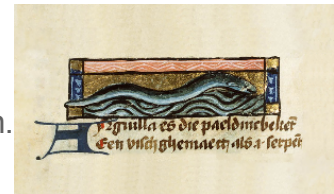 n.
Anguilla es die pael dmēbekēt
Een visch ghemaect als .i. serpēt